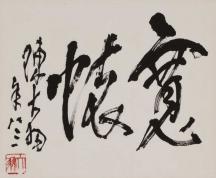 寬懷
陳大羽